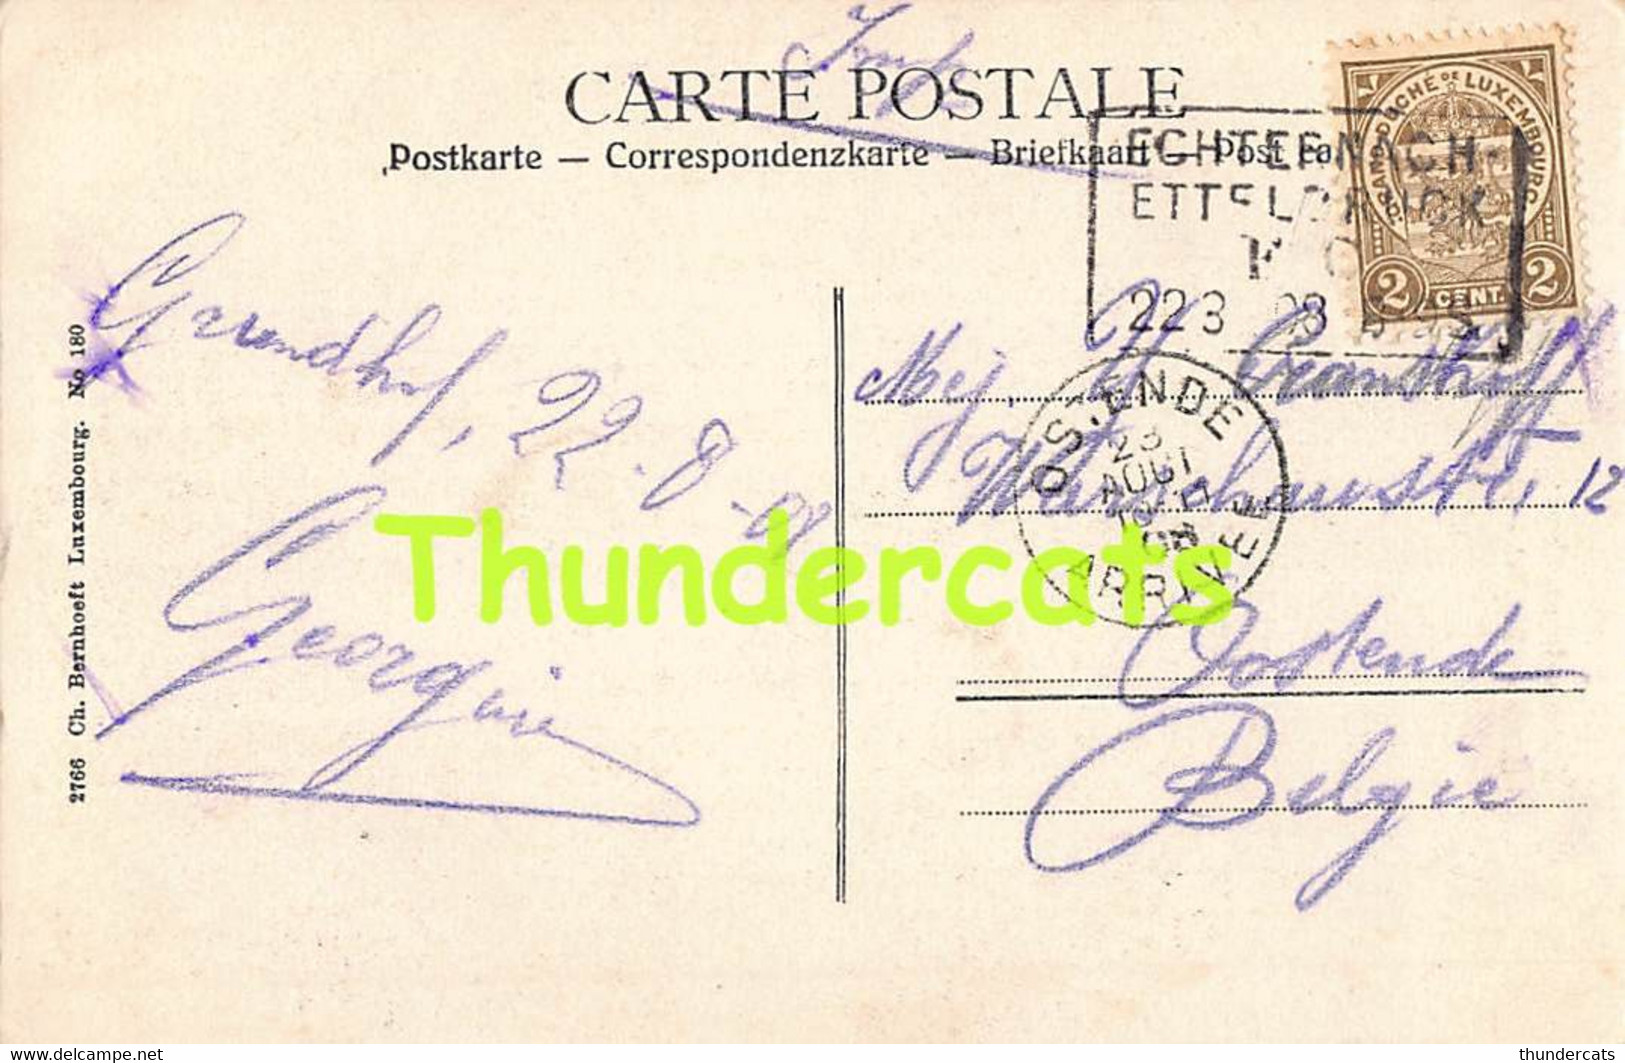 CARTE POSTALE
Postkarte — Correspondenzkarte — Briefkaart — Post ca
GRAND-DUCHÉ DE LUXEMBOURG
2 CENT. 2
ECHTERNACH-
ETTELBRUCK
223 08
Grundhof, 22-8-08
Georgine
Mej.
12
Oostende
Belgie
OSTENDE
23
AOUT
08
ARRIVEE
2766 Ch. Bernhoeft Luxembourg. No 180
Thundercats
www.delcampe.net
thundercats